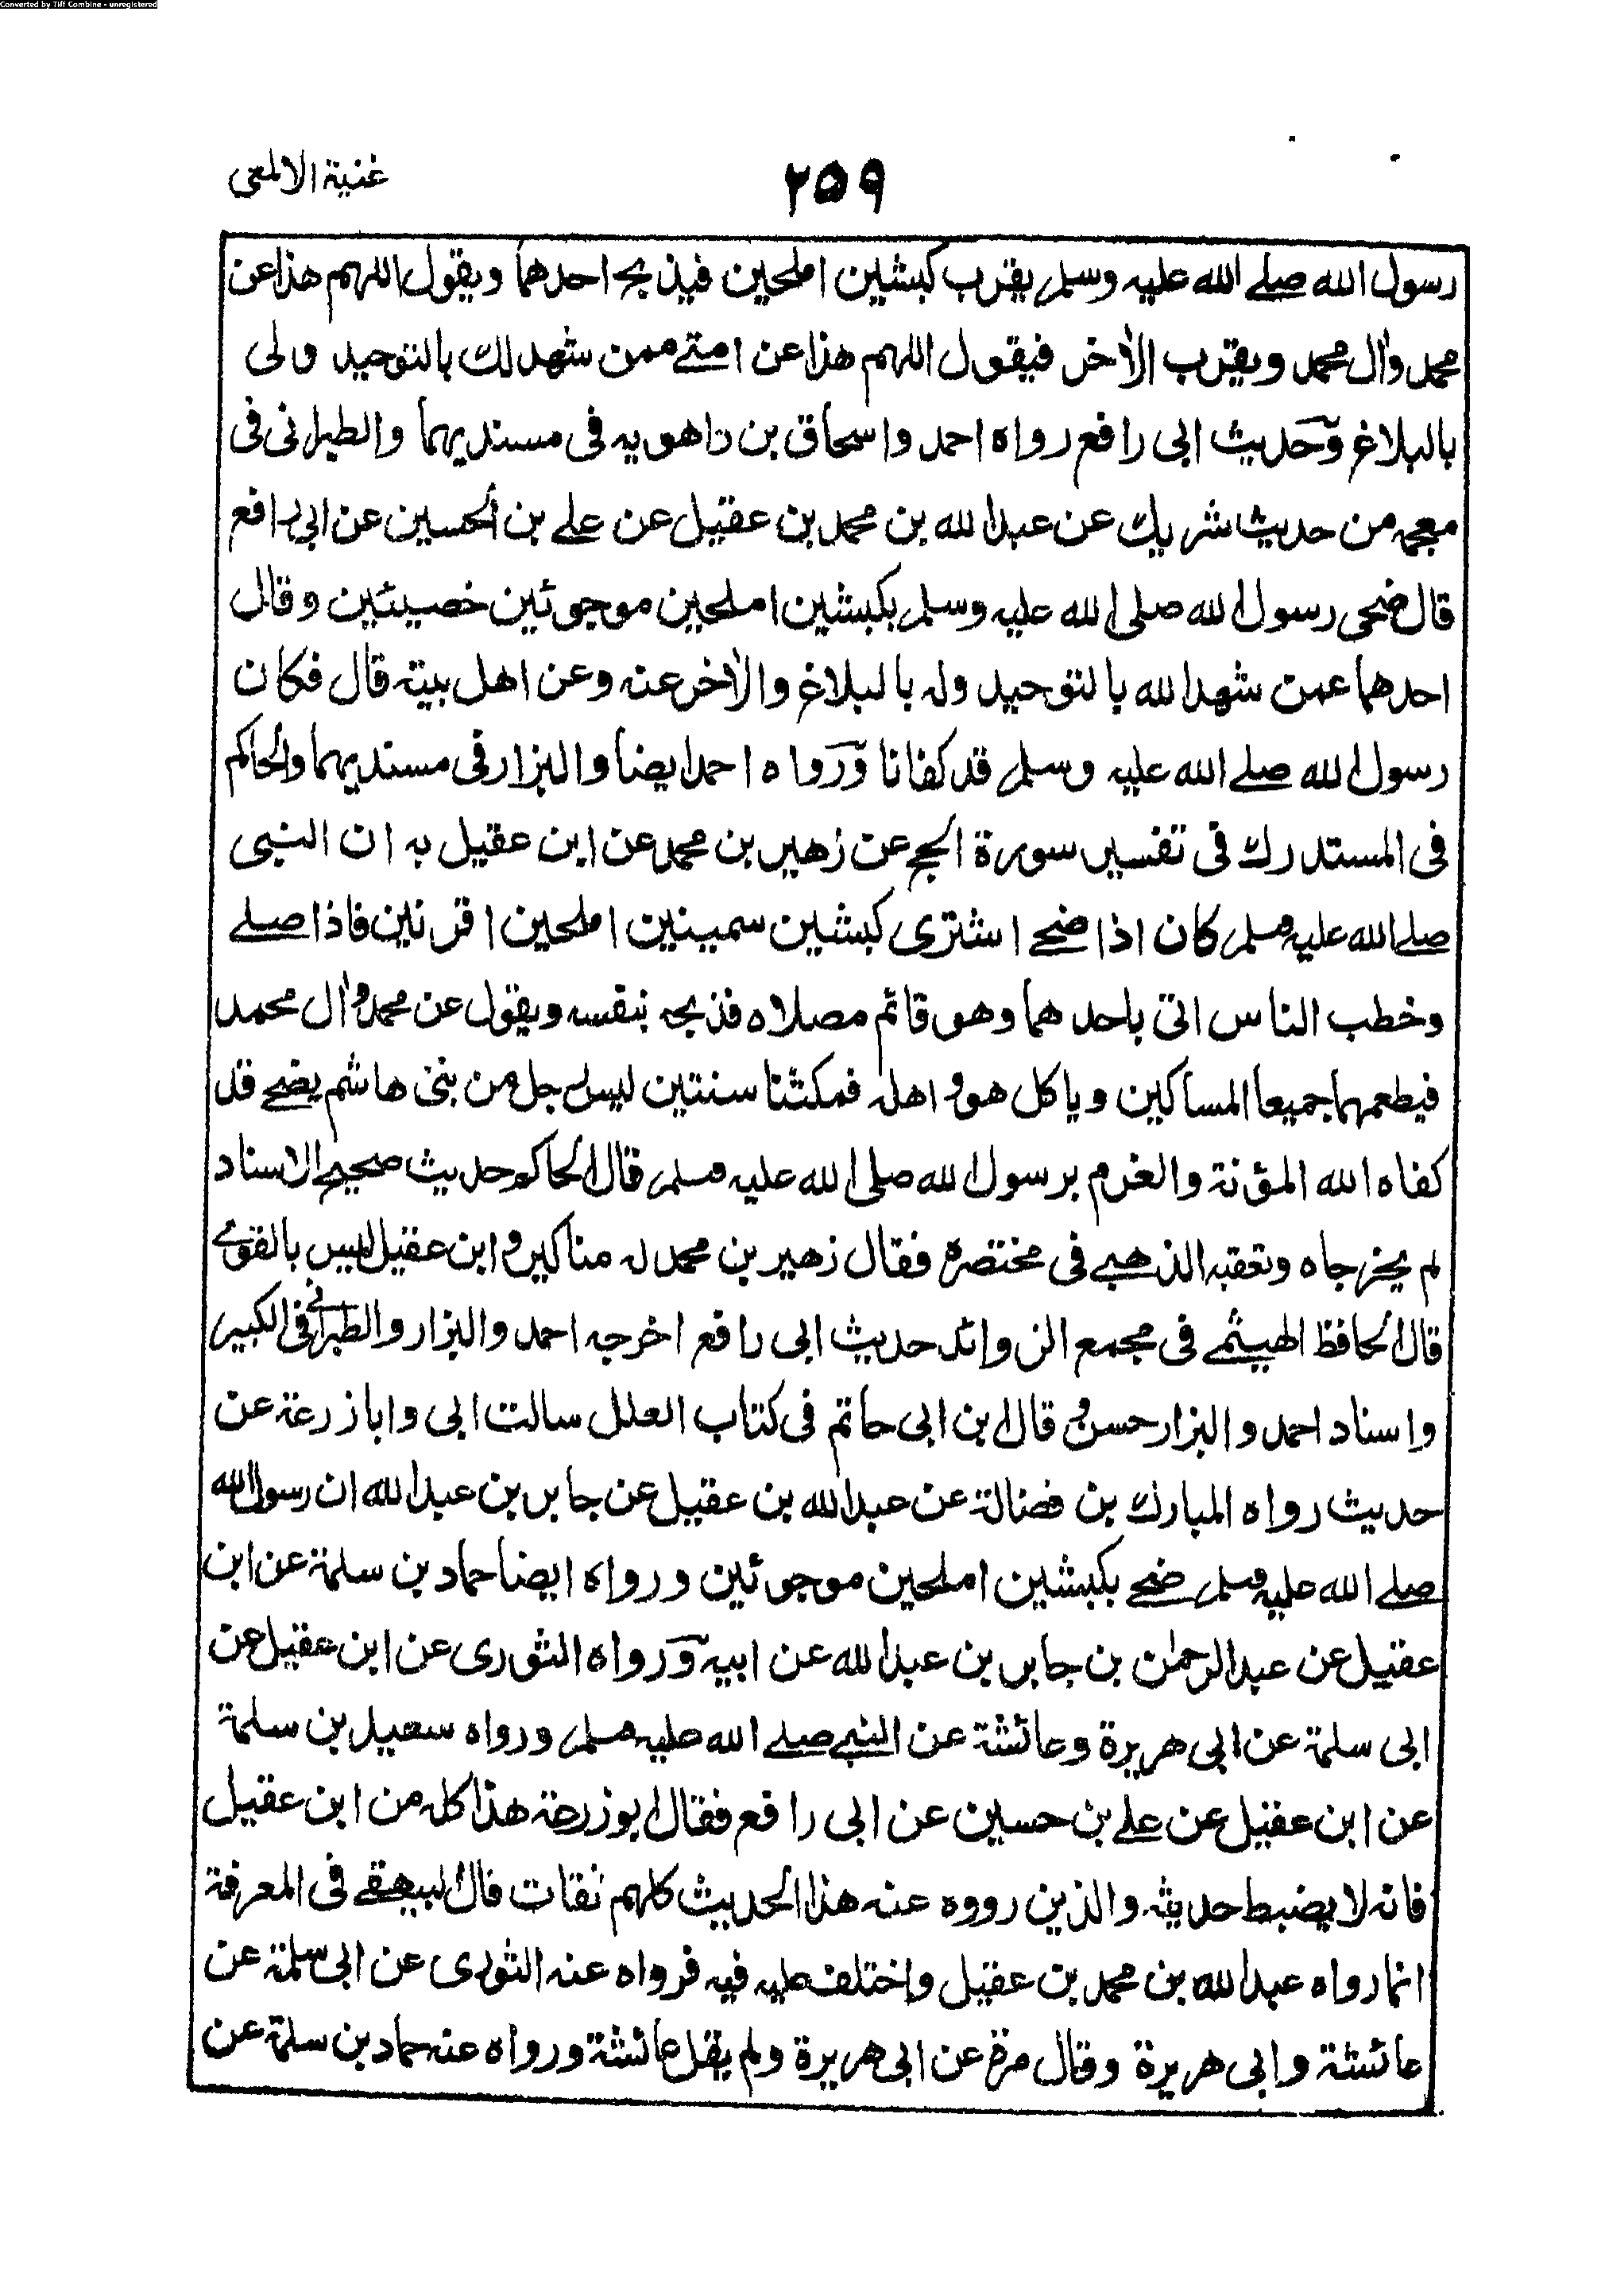 Converted by Tiff Combine - unregistered
غنية الالمعى
٢٥٩
رسول الله صلے الله عليه وسلم يقرب كبشين املحين فيذبح احدهما ويقول اللهم هذا عن
محمد وآل محمد ويقرب الآخر فيقول اللهم هذا عن امتے ممن شهد لك بالتوحيد ولى
بالبلاغ وحديث ابى رافع رواه احمد واسحاق بن راهويه فى مسنديهما والطبرانى فى
معجمه من حديث شريك عن عبدالله بن محمد بن عقيل عن علے بن الحسين عن ابى رافع
قال ضحى رسول الله صلى الله عليه وسلم بكبشين املحين موجوئين خصيئين وقال
احدهما عمن شهد الله بالتوحيد وله بالبلاغ والآخر عنه وعن اهل بيته قال فكان
رسول الله صلے الله عليه وسلم قد كفانا ورواه احمد ايضا والبزار فى مسنديهما والحاكم
فى المستدرك فى تفسير سورة الحج عن زهير بن محمد عن ابن عقيل به ان النبى
صلے الله عليه وسلم كان اذا ضحے اشترى كبشين سمينين املحين اقرنين فاذا صلے
وخطب الناس اتى باحدهما وهو قائم مصلاه فذبحه بنفسه ويقول عن محمد وآل محمد
فيطعمهما جميعا المساكين وياكل هو واهله فمكثنا سنتين ليس رجل من بنى هاشم يضحے قد
كفاه الله المؤنة والغرم برسول الله صلى الله عليه وسلم قال الحاكم حديث صحيح الاسناد
لم يخرجاه وتعقبه الذهبے فى مختصره فقال زهير بن محمد له مناكير وابن عقيل ليس بالقوے
قال الحافظ الهيثمے فى مجمع الزوائد حديث ابى رافع اخرجه احمد والبزار والطبرانے فى الكبير
واسناد احمد والبزار حسن وقال ابن ابى حاتم فى كتاب العلل سالت ابى وابا زرعة عن
حديث رواه المبارك بن فضالة عن عبدالله بن عقيل عن جابر بن عبدالله ان رسول الله
صلے الله عليه وسلم ضحے بكبشين املحين موجوئين ورواه ايضا حماد بن سلمة عن ابن
عقيل عن عبدالرحمٰن بن جابر بن عبدالله عن ابيه ورواه الثورى عن ابن عقيل عن
ابى سلمة عن ابى هريرة وعائشة عن النبے صلے الله عليه وسلم ورواه سعيد بن سلمة
عن ابن عقيل عن علے بن حسين عن ابى رافع فقال ابو زرعة هذا كله من ابن عقيل
فانه لا يضبط حديثه والذين رووه عنه هذا الحديث كلهم ثقات قال البيهقے فى المعرفة
انما رواه عبدالله بن محمد بن عقيل واختلف عليه فيه فرواه عنه الثورى عن ابى سلمة عن
عائشة وابى هريرة وقال مرة عن ابى هريرة ولم يقل عائشة ورواه عنه حماد بن سلمة عن